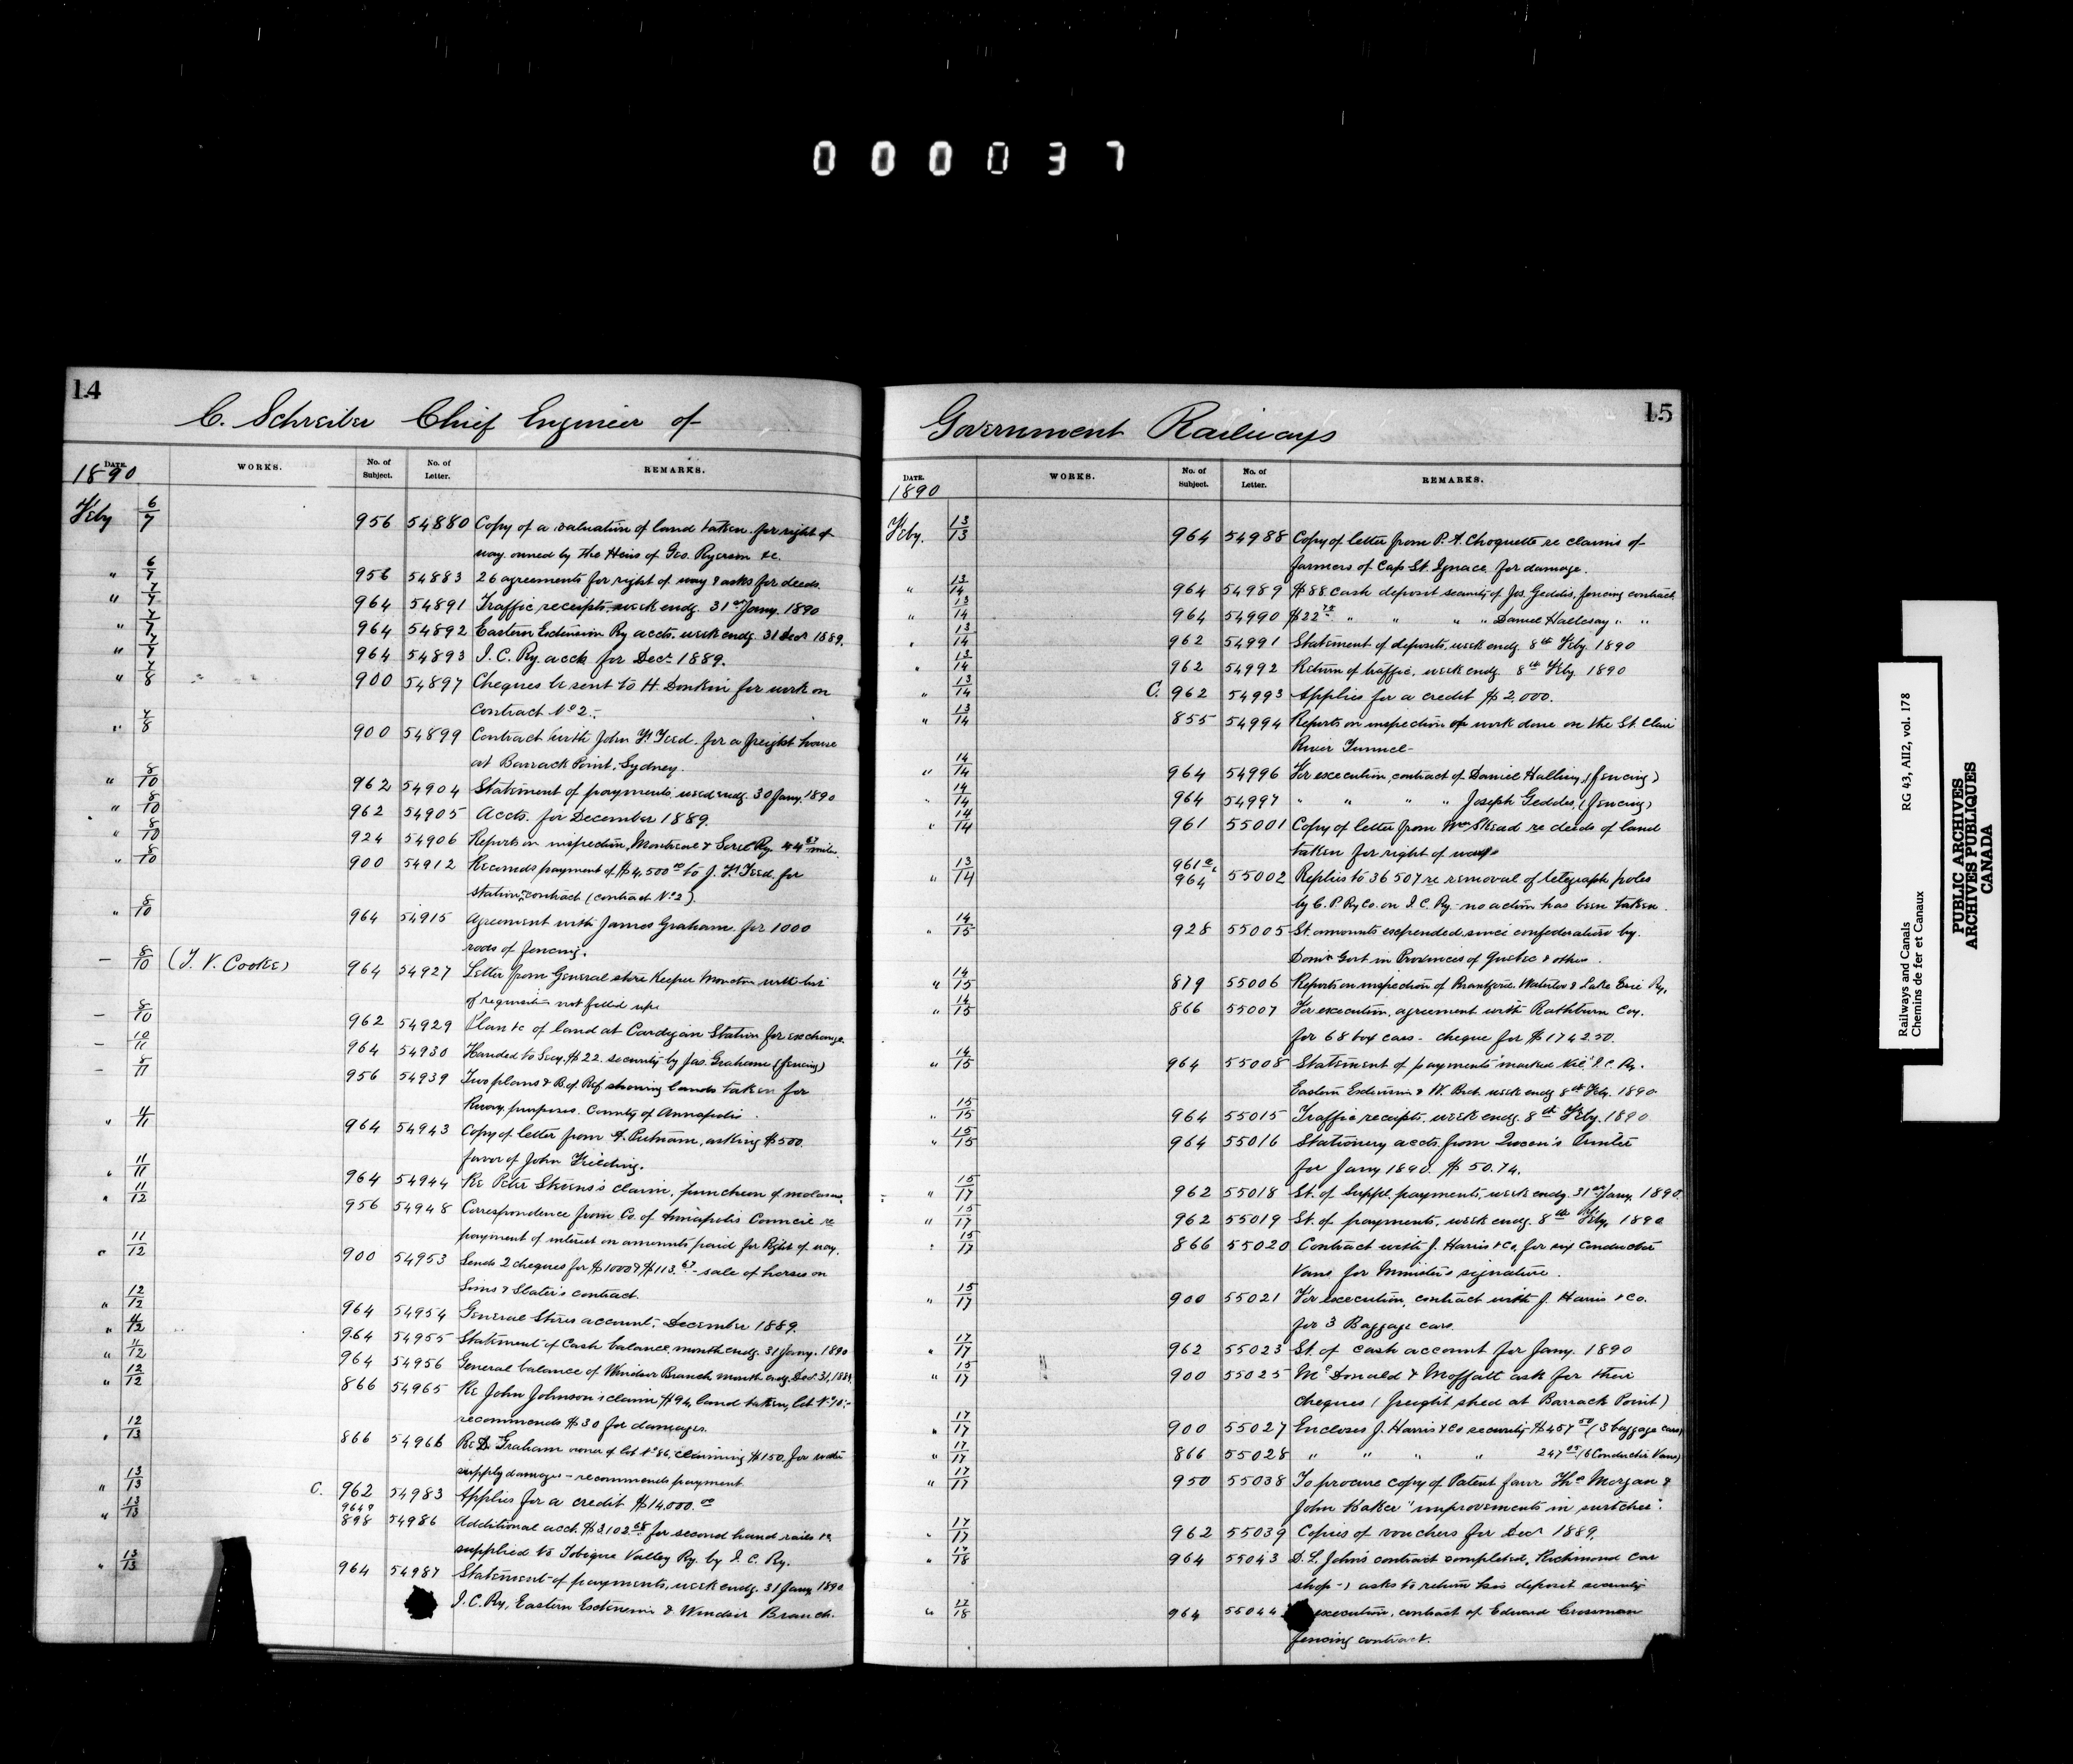 0 0 0 0 3 7
14
C. Schreiber Chief Engineer of
DATE. WORKS. No. of Subject. No. of Letter. REMARKS.
1890
Feby 6/7 956 54880 Copy of a valuation of land taken for right of
way owned by the Heirs of Geo. Ryerson &c.
" 6/7 956 54883 26 agreements for right of way & asks for deeds.
" 7/7 964 54891 Traffic receipts, week endg. 31st Jany. 1890
" 7/7 964 54892 Eastern Extension Ry accts. week endg. 31 Decr 1889.
" 7/7 964 54893 I. C. Ry. accts for Decr. 1889.
" 7/8 900 54897 Cheques be sent to H. Donkin for work on
Contract No 2.
" 7/8 900 54899 Contract with John F. Teed for a freight house
at Barrack Point, Sydney.
" 8/10 962 54904 Statement of payments, week endg. 30 Jany. 1890
" 8/10 962 54905 Accts. for December 1889.
" 8/10 924 54906 Reports on inspection, Montreal & Sorel Ry. 44 67 miles.
" 8/10 900 54912 Recomds payment of $4,500 00 to J. F. Teed for
station contract (contract No 2)
" 8/10 964 54915 Agreement with James Graham for 1000
rods of fencing.
— 8/10 (T. V. Cooke) 964 54927 Letter from General store Keeper Moncton with list
of requisition not filled up.
— 8/10 962 54929 Plan &c of land at Cardigan Station for exchange.
— 10/11 964 54930 Handed to Secy. $22. security by Jas. Grahame (fencing)
— 8/11 956 54939 Two plans & B. of Ref showing lands taken for
Ruway purposes. County of Annapolis.
" 11/11 964 54943 Copy of letter from A. Putnam, asking $500.
favor of John Fielding.
" 11/11 964 54944 Re Peter Stevens's claim, puncheon of molasses.
" 11/12 956 54948 Correspondence from Co. of Annapolis Council re
payment of interest on amounts paid for Right of way.
" 11/12 900 54953 Sends 2 cheques for $1000 & $113. 67 - sale of horses on
Sims & Slater's contract.
" 12/12 964 54954 General Stores account, December 1889.
" 11/12 964 54955 Statement of Cash balance, month endg. 31 Jany. 1890
" 11/12 964 54956 General balance of Windsor Branch month endg. Decr. 31, 1889.
" 12/12 866 54965 Re John Johnson's claim $94, land taken, lot No 70:-
recommends $30 for damages.
" 12/13 866 54966 Re D. Graham owner of lot No 86, claiming $150, for water
supply damages - recommends payment.
" 13/13 C. 962 54983 Applies for a credit $14,000. 00
" 13/13 964 & 898 54986 Additional acct. $3102 68 for second hand rails &c
supplied to Tobique Valley Ry. by I. C. Ry.
" 13/13 964 54987 Statement of payments, week endg. 31 Jany 1890
I. C. Ry, Eastern Extension & Windsor Branch.
15
Government Railways
DATE. WORKS. No. of Subject. No. of Letter. REMARKS.
1890
Feby. 13/13 964 54988 Copy of letter from P. A. Choquette re claims of
farmers of Cap St. Ignace for damage.
" 13/14 964 54989 $88. cash deposit security of Jos. Geddis, fencing contract.
" 13/14 964 54990 $22 " " " " Daniel " "
" 13/14 962 54991 Statement of deposits, week endg. 8th Feby. 1890
" 13/14 962 54992 Return of traffic, week endg. 8th Feby 1890
" 13/14 C. 962 54993 Applies for a credit $2,000.
" 13/14 855 54994 Reports on inspection of work done on the St. Clair
River Tunnel-
" 14/14 964 54996 For execution, contract of Daniel (fencing)
" 14/14 964 54997 " " " " Joseph Geddes, (fencing)
" 14/14 961 55001 Copy of letter from Wm Skead re deeds of land
taken for right of way
" 13/14 961 & 964 55002 Replies to 36507 re removal of telegraph poles
by C. P. Ry Co. on I. C. Ry. - no action has been taken.
" 14/15 928 55005 St. amounts expended since confederation by
Domn Govt in Provinces of Quebec & others.
" 14/15 879 55006 Reports on inspection of Brantford Waterloo & Lake Erie Ry.
" 14/15 866 55007 For execution, agreement with Rathburn Coy.
for 68 box cars - cheque for $1742.50.
" 14/15 964 55008 Statement of payments marked Nil, I. C. Ry.
Eastern Extension & W. Brch. week endg 8th Feby. 1890
" 15/15 964 55015 Traffic receipts, week endg. 8th Feby. 1890
" 15/15 964 55016 Stationery accts. from Queen's Printer
for Jany 1890. $50.74.
" 15/17 962 55018 St. of Suppl. payments, week endg. 31st Jany. 1890.
" 15/17 962 55019 St. of payments, week endg. 8th Feby, 1890
" 15/17 866 55020 Contract with J. Harris & Co, for six Conductor
Vans for Minister's signature.
" 15/17 900 55021 For execution, contract with J. Harris & Co.
for 3 Baggage cars.
" 17/17 962 55023 St. of cash account for Jany. 1890
" 15/17 900 55025 McDonald & Moffatt ask for their
cheques (freight shed at Barrack Point)
" 17/17 900 55027 Encloses J. Harris & Co security $457 50 (3 baggage cars)
" 17/17 866 55028 " " " " 247 05 (6 Conductor Vans)
" 17/17 950 55038 To procure copy of Patent favr Thos Morgan &
John Baker "improvements in switches".
" 17/17 962 55039 Copies of vouchers for Decr 1889.
" 17/18 964 55043 D. L. John's contract completed, Richmond Car
shop - asks to return his deposit security
" 17/18 964 55044 execution, contract of Edward Crossman
fencing contract.
Railways and Canals RG 43, AII2, vol. 178
Chemins de fer et Canaux
PUBLIC ARCHIVES
ARCHIVES PUBLIQUES
CANADA